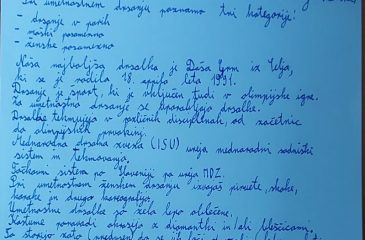 Pri umetnostnem drsanju poznamo tri kategorije:
- drsanje v parih
- moški posamezno
- ženske posamezno
Naša najboljša drsalka je Daša Grm iz Celja,
ki se je rodila 18. aprila leta 1991.
Drsanje je šport, ki je vključen tudi v olimpijske igre.
Za umetnostno drsanje se uporabljajo drsalke.
Drsalke tekmujejo v različnih disciplinah, od začetnic
do olimpijskih prvakinj.
Mednarodna drsalna zveza (ISU) ureja mednarodni sodniški
sistem in tekmovanja.
Točkovni sistem po Sloveniji pa ureja MDZ.
Pri umetnostnem ženskem drsanju izvajaš piruete, skoke,
korake in drugo koreografijo.
Umetnostne drsalke so zelo lepo oblečene.
Kostume ponavadi okrasijo z diamantki in/ali bleščicami,